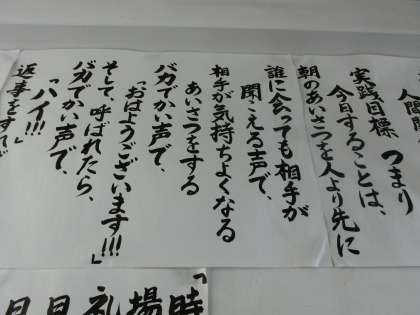 人間
実践目標 つまり
今日することは、
朝のあいさつを人より先に
誰に会っても相手が
聞こえる声で、
相手が気持ちよくなる
あいさつをする
バカでかい声で、
「おはようございます!!!」
そして、呼ばれたら、
バカでかい声で、
「ハイ!!!」
返事をする
「時
場
礼